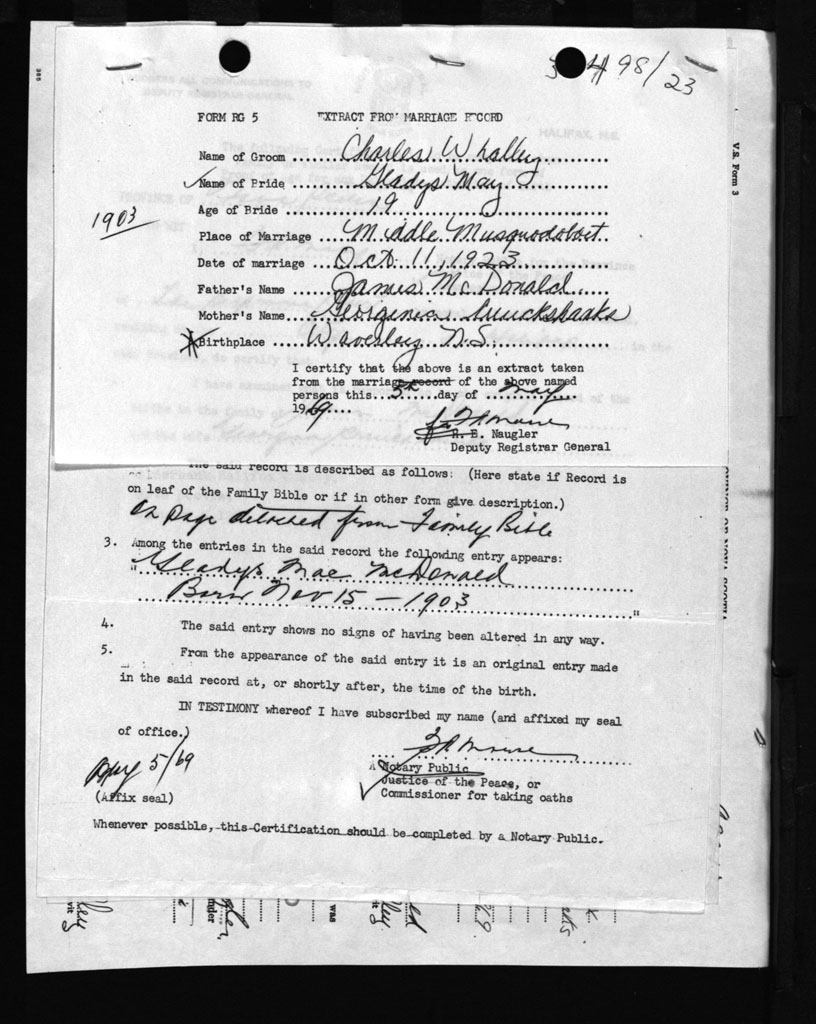 3 498/23
FORM RG 5 EXTRACT FROM MARRIAGE RECORD
Name of Groom .... Charles Whalley
Name of Bride .... Gladys May
1903
Age of Bride .... 19
Place of Marriage .... Middle Musquodoboit
Date of marriage .... Oct. 11, 1923
Father's Name .... James McDonald
Mother's Name .... Georginia Cruickshanks
Birthplace .... Waverley N.S.
I certify that the above is an extract taken
from the marriage record of the above named
persons this...5th....day of ....May....
1969....
R. E. Naugler
Deputy Registrar General
The said record is described as follows: (Here state if Record is
on leaf of the Family Bible or if in other form give description.)
On page detached from Family Bible
3. Among the entries in the said record the following entry appears:
"Gladys Mae McDonald
Born Nov 15 - 1903"
4. The said entry shows no signs of having been altered in any way.
5. From the appearance of the said entry it is an original entry made
in the said record at, or shortly after, the time of the birth.
IN TESTIMONY whereof I have subscribed my name (and affixed my seal
of office.)
5/69
A Notary Public
Justice of the Peace, or
Commissioner for taking oaths
(Affix seal)
Whenever possible, this Certification should be completed by a Notary Public.
V.S. Form 3